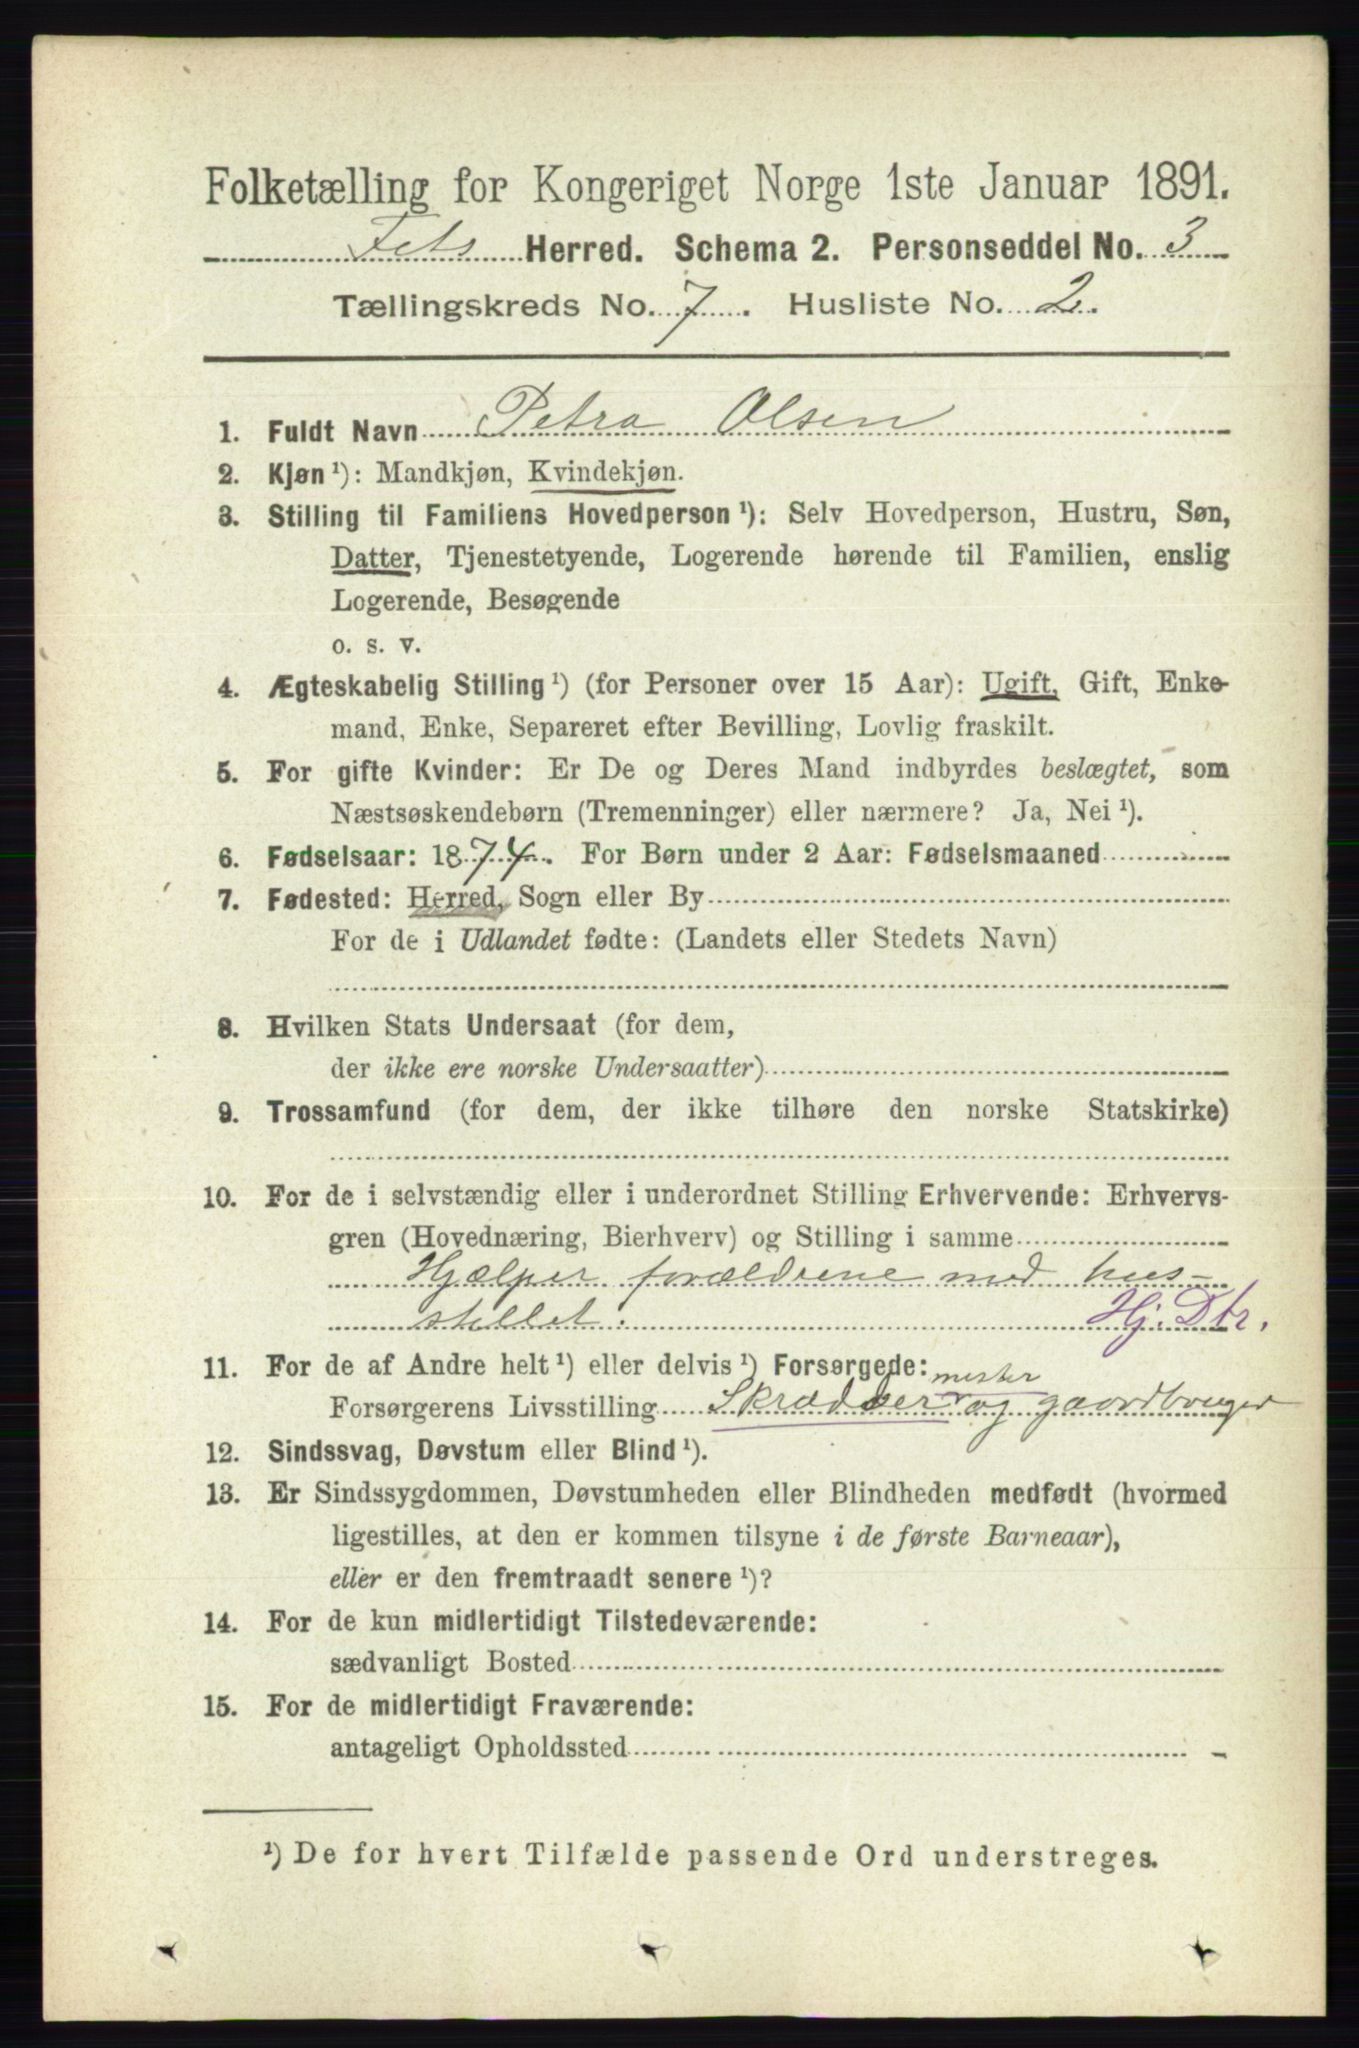 Folketælling for Kongeriget Norge 1ste Januar 1891.
Fets Herred. Schema 2. Personseddel No. 3
Tællingskreds No. 7. Husliste No. 2.
1. Fuldt Navn Petra Olsen
2. Kjøn ¹): Mandkjøn, Kvindekjøn.
3. Stilling til Familiens Hovedperson ¹): Selv Hovedperson, Hustru, Søn,
Datter, Tjenestetyende, Logerende hørende til Familien, enslig
Logerende, Besøgende
o. s. v.
4. Ægteskabelig Stilling ¹) (for Personer over 15 Aar): Ugift, Gift, Enke-
mand, Enke, Separeret efter Bevilling, Lovlig fraskilt.
5. For gifte Kvinder: Er De og Deres Mand indbyrdes beslægtet, som
Næstsøskendebørn (Tremenninger) eller nærmere? Ja, Nei ¹).
6. Fødselsaar: 1874. For Børn under 2 Aar: Fødselsmaaned
7. Fødested: Herred, Sogn eller By
For de i Udlandet fødte: (Landets eller Stedets Navn)
8. Hvilken Stats Undersaat (for dem,
der ikke ere norske Undersaatter)
9. Trossamfund (for dem, der ikke tilhøre den norske Statskirke)
10. For de i selvstændig eller i underordnet Stilling Erhvervende: Erhvervs-
gren (Hovednæring, Bierhverv) og Stilling i samme
Hjælper forældrene med hus-
stellet. Hj. Dtr.
11. For de af Andre helt ¹) eller delvis ¹) Forsørgede:
mester
Forsørgerens Livsstilling Skrædder og gaardbruger
12. Sindssvag, Døvstum eller Blind ¹).
13. Er Sindssygdommen, Døvstumheden eller Blindheden medfødt (hvormed
ligestilles, at den er kommen tilsyne i de første Barneaar),
eller er den fremtraadt senere ¹)?
14. For de kun midlertidigt Tilstedeværende:
sædvanligt Bosted
15. For de midlertidigt Fraværende:
antageligt Opholdssted
¹) De for hvert Tilfælde passende Ord understreges.